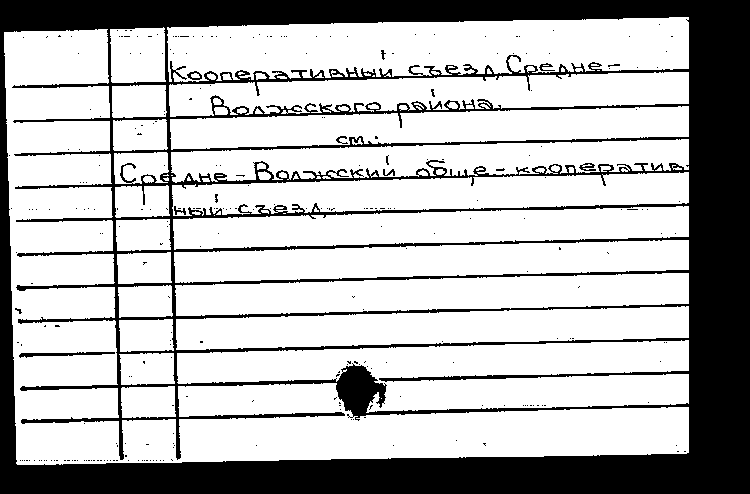 Кооперативный съезд Средне-
Волжского района.
см.:
Средне-Волжский обще-кооператив-
ный съезд.